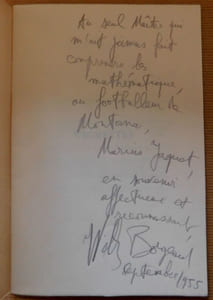 Au seul Maître qui
m'ait jamais fait
comprendre les
mathématiques,
au footballeur de
Montana,
Marius Jaquet,
en souvenir
affectueux et
reconnaissant,
Borgeaud
septembre 1955